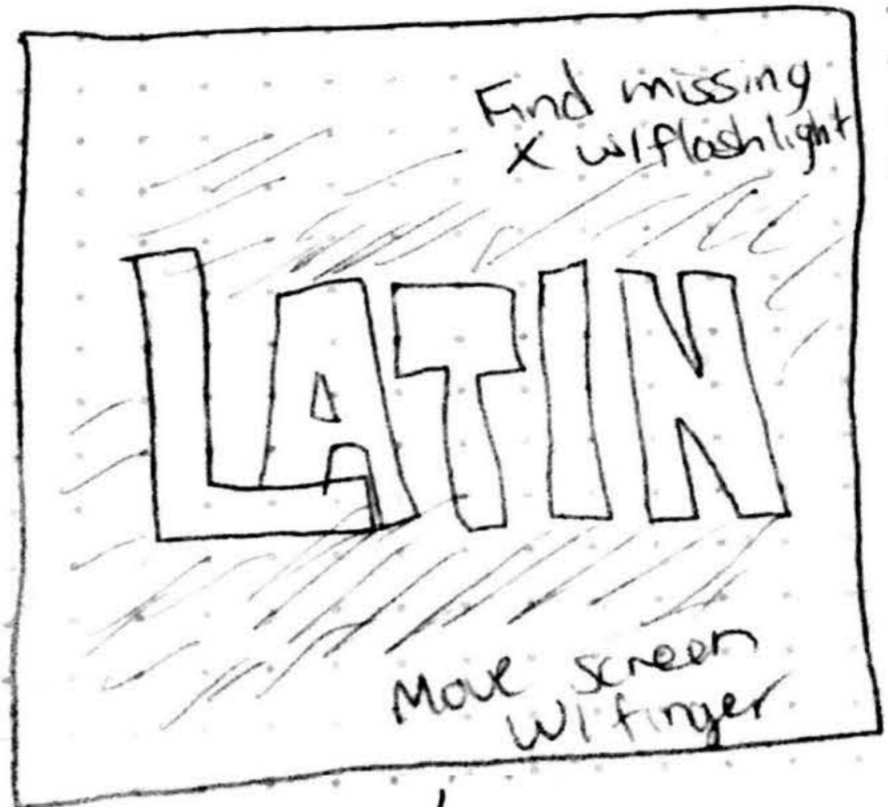 Find missing
x w/flashlight
LATIN
Move screen
w/finger